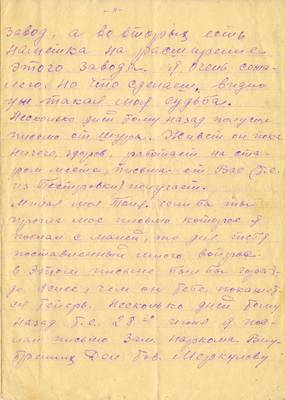 завод, а во вторых есть
наметка на расширение
этого завода. Я очень сожа-
лею, но что сделаешь, видно
уж такая моя судьба.
Несколько дней тому назад получил
письмо от Шуры. Живет он пока
ничего, здоров, работает на ста-
ром месте, письма от Вас (т.е.
из Петровки) получает.
Милая моя если бы ты
прочла мое письмо которое я
послал с мамой, то для тебя
поставленный много вопрос
в этом письме был бы гораз-
до яснее, чем он тебе покажет-
ся теперь. Несколько дней тому
назад т.е. 28го июня я по-
слал письмо Зам. наркома Вну-
тренних Дел тов. Меркулову